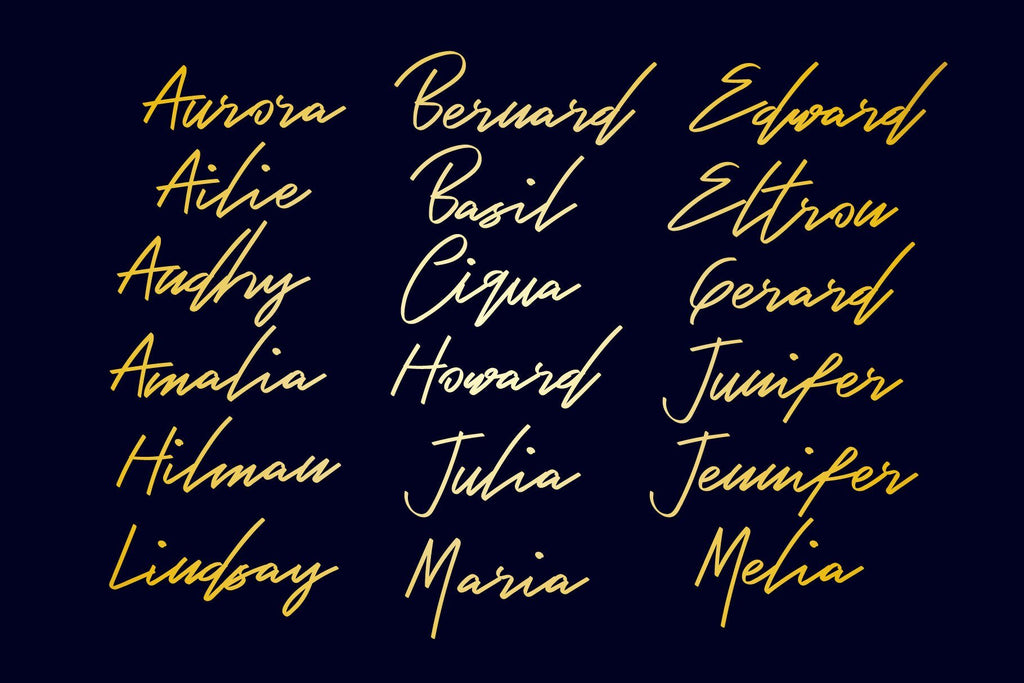 Aurora Bernard Edward
Ailie Basil Eltron
Andhy Ciqua Gerard
Amalia Howard Junifer
Hilman Julia Jennifer
Lindsay Maria Melia